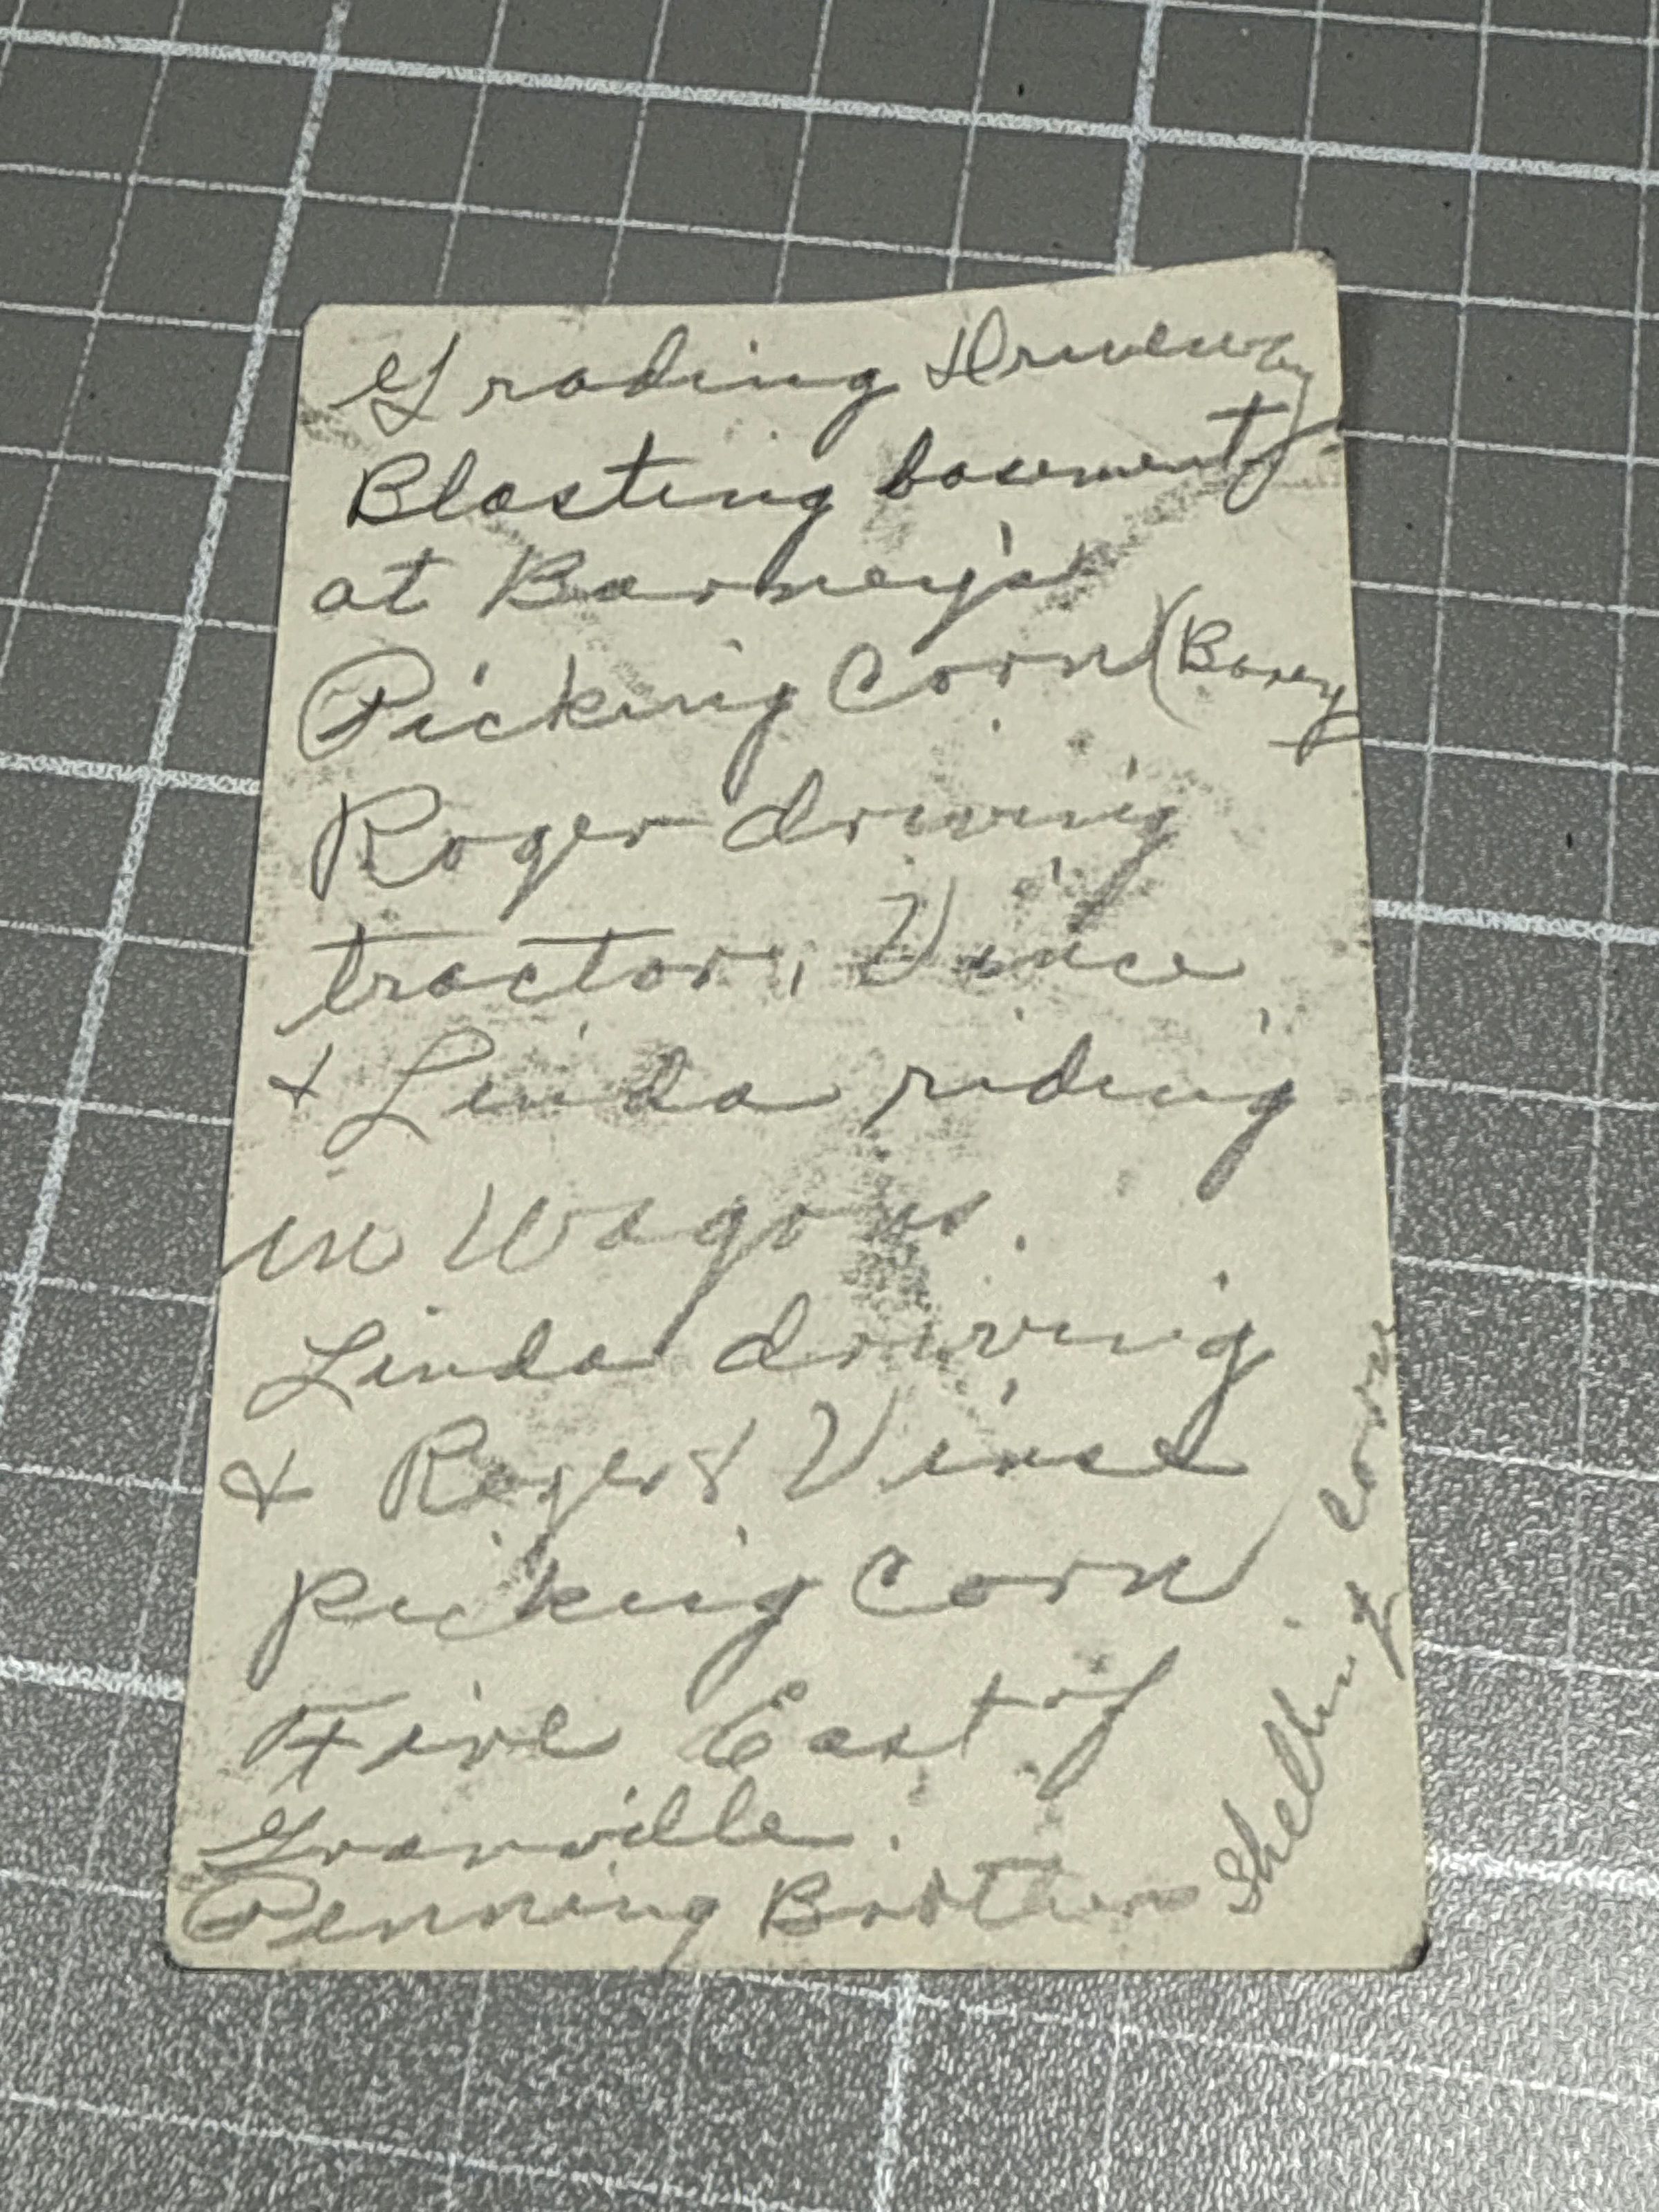 Grading Driveway
Blasting basement
at Barney's
Picking Corn (Barey
Roger driving
tractor, Vince
& Linda riding
in Wagon.
Linda driving
& Roger & Vince
picking Corn
Fire East of
Granville.
Penning Brothers
Shelling corn